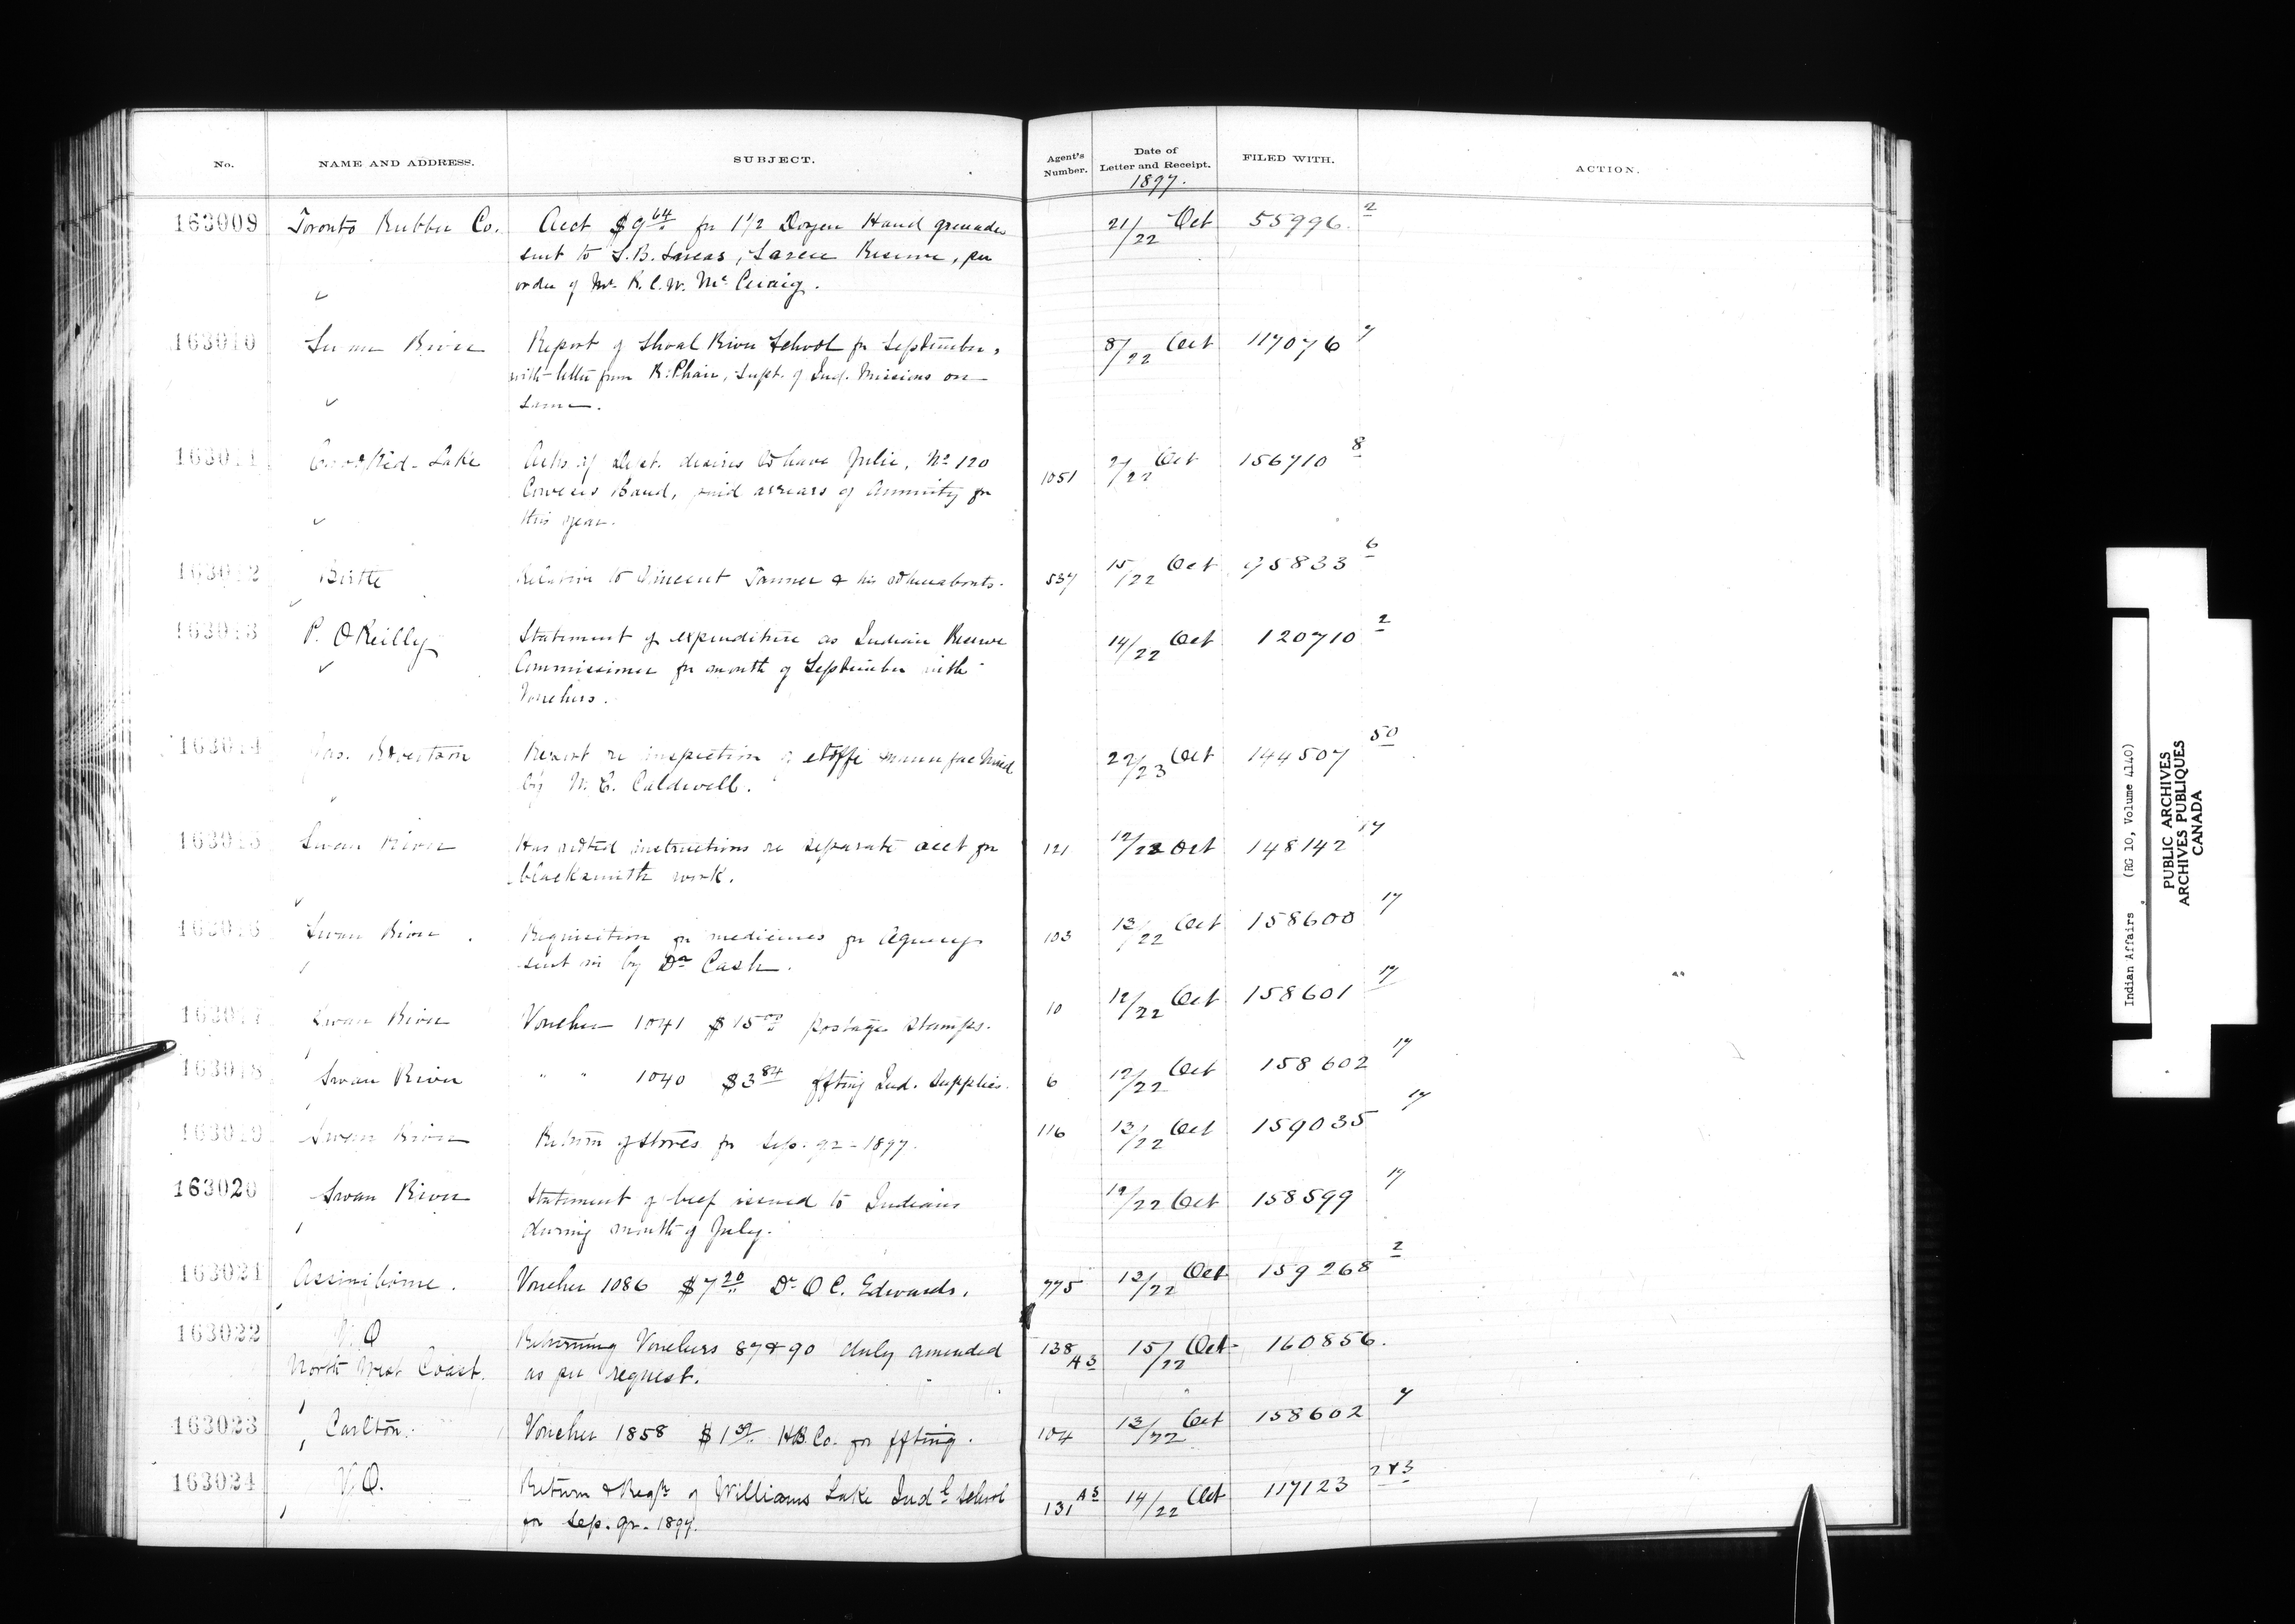 No. NAME AND ADDRESS. SUBJECT. Agent's Number. Date of Letter and Receipt. FILED WITH. ACTION.
1897.
163009 Toronto Rubber Co. Acct $9 64 for 1 1/2 Dozen Hand grenades 21/22 Oct 55996 2
sent to S.B. Lucas, Sarcee Reserve, per
order of Mr. R.C.W. McCuaig.
163010 Swan River Report of Shoal River School for September, 8/22 Oct 117076 7
with letter from R. Phair, Supt. of Ind. Missions on
same.
163011 Crooked Lake Asks if Dept. desires to have Julie, No 120 1051 2/22 Oct 156710 8
Band, paid arrears of Annuity for
this year.
163012 Birtle Relative to Vincent Tanner & his whereabouts. 537 15/22 Oct 95833 6
163013 P. O'Reilly Statement of expenditure as Indian Reserve 14/22 Oct 120710 2
Commissioner for month of September with
Vouchers.
163014 Jas. Report re inspection of etoffe manufactured 22/23 Oct 144507 50
by Caldwell.
163015 Swan River Has noted instructions re separate acct for 121 12/22 Oct 148142 17
blacksmith work.
163016 Swan River Requisition for medicines for Agency 103 13/22 Oct 158600 17
sent in by Dr Cash.
163017 Swan River Voucher 1041 $15 00 postage stamps. 10 12/22 Oct 158601 17
163018 Swan River " " 1040 $3 84 ffting Ind. Supplies. 6 12/22 Oct 158602 17
163019 Swan River Return of Stores for Sep. qr - 1897. 116 13/22 Oct 159035 17
163020 Swan River Statement of beef issued to Indians 19/22 Oct 158599 17
during month of July.
163021 Assiniboine. Voucher 1086 $7 20 Dr O.C. Edwards. 775 13/22 Oct 159268 2
163022 V.O Returning Vouchers 87 & 90 duly amended 138 A3 15/22 Oct 160856.
North West Coast. as per request.
163023 Carlton. Voucher 1858 $1 H.B. Co. for ffting. 104 13/22 Oct 158602 7
163024 V.O. Return & Reqn of Williams Lake Indl School 131 A3 14/22 Oct 117123 2&3
for Sep. qr. 1897.
Indian Affairs, (RG 10, Volume 4140)
PUBLIC ARCHIVES
ARCHIVES PUBLIQUES
CANADA